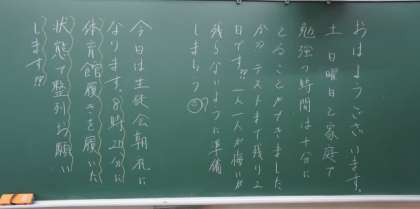 おはようございます。
土日曜日と家庭で
勉強の時間は十分に
とることができました
か？テストまで残り2
日です!!一人一人が悔いが
残らないように準備
しましょう
今日は生徒会朝礼に
なります。8時25分に
体育館履きを履いた
状態で整列お願い
します!!